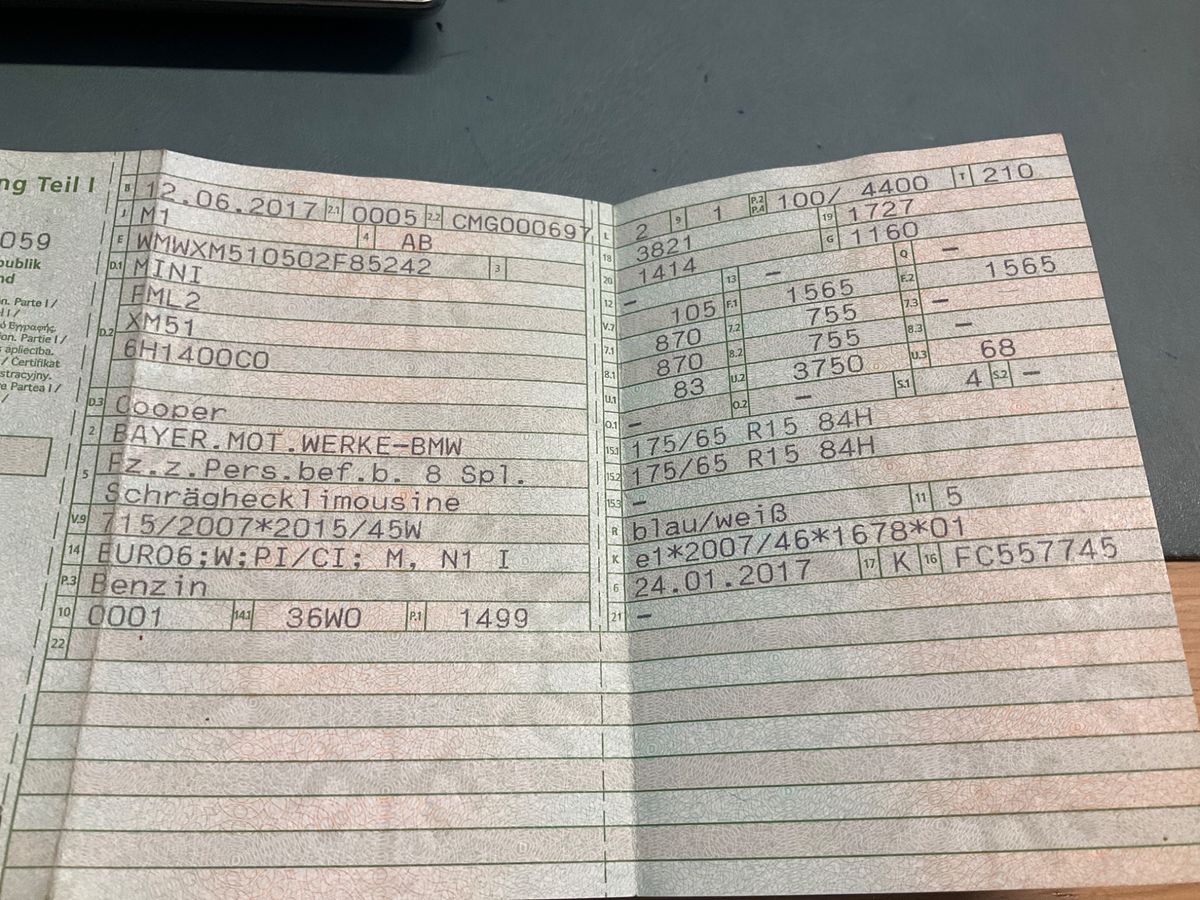 ng Teil I
059
publik
nd
on. Parte I /
l I /
ό Εγγραφής.
tion. Partie I /
s apliecība.
/ Certifikat
stracyjny.
re Partea I /
B 12.06.2017 2.1 0005 2.2 CMG000697
J M1 4 AB
E WMWXM510502F85242 3
D.1 MINI
FML2
D.2 XM51
6H1400C0
D.3 Cooper
2 BAYER.MOT.WERKE-BMW
5 Fz.z.Pers.bef.b. 8 Spl.
Schräghecklimousine
V.9 715/2007*2015/45W
14 EURO6;W;PI/CI; M, N1 I
P.3 Benzin
10 0001 14.1 36W0 P.1 1499
22
L 2 9 1 P.2 P.4 100/ 4400 T 210
18 3821 19 1727
20 1414 G 1160
12 – 13 – Q –
V.7 105 F.1 1565 F.2 1565
7.1 870 7.2 755 7.3 –
8.1 870 8.2 755 8.3 –
U.1 83 U.2 3750 U.3 68
O.1 – O.2 – S.1 4 S.2 –
15.1 175/65 R15 84H
15.2 175/65 R15 84H
15.3 –
R blau/weiß 11 5
K e1*2007/46*1678*01
6 24.01.2017 17 K 16 FC557745
21 –